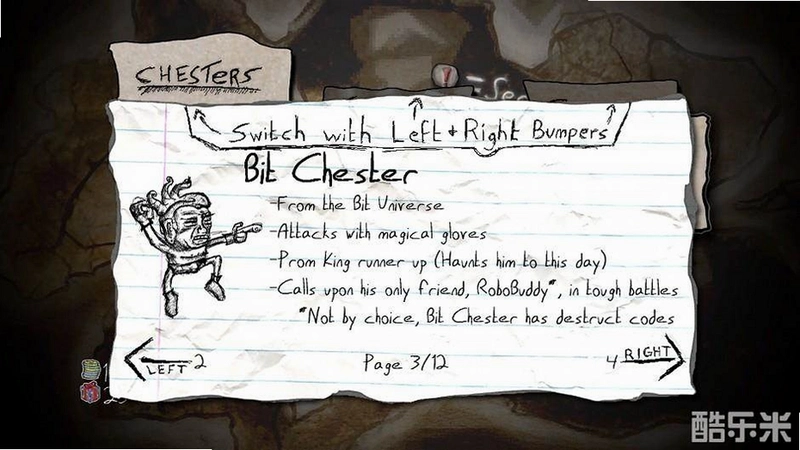 CHESTERS
-See
Switch with Left + Right Bumpers
Bit Chester
-From the Bit Universe
-Attacks with magical gloves
-Prom King runner up (Haunts him to this day)
-Calls upon his only friend, RoboBuddy*, in tough battles
*Not by choice, Bit Chester has destruct codes
LEFT 2
Page 3/12
4 RIGHT
酷乐米